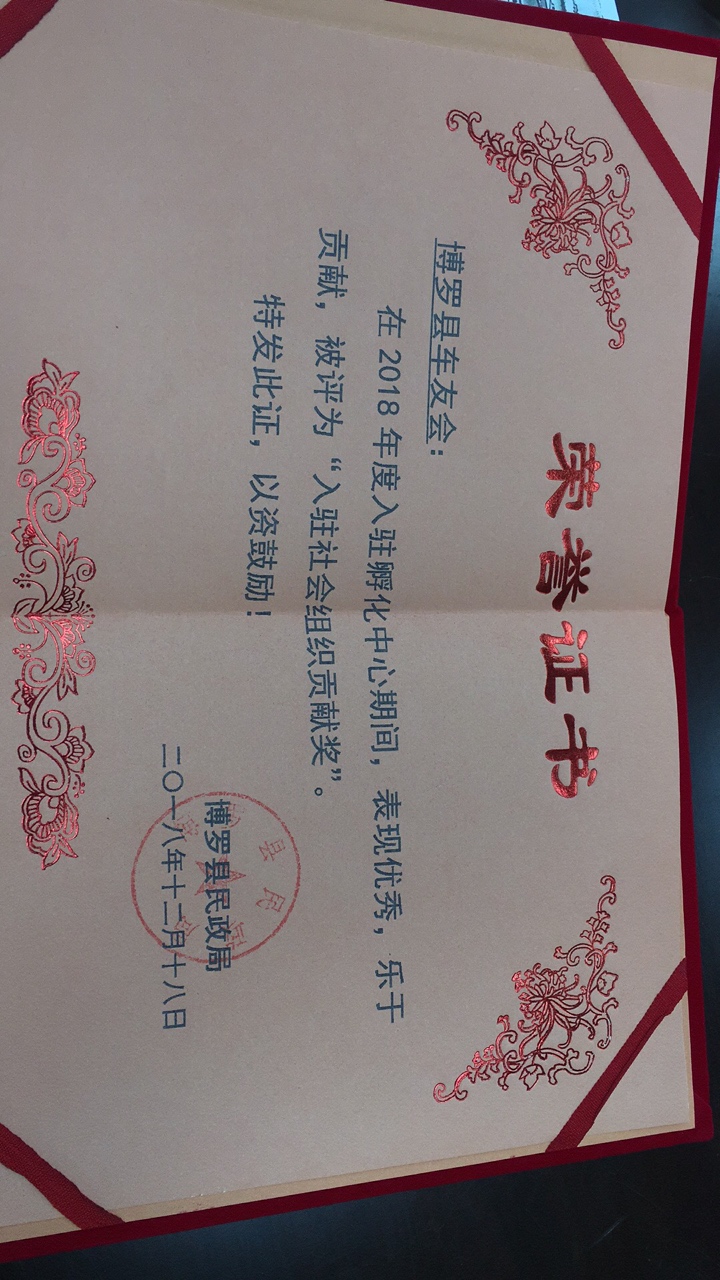 荣誉证书
博罗县车友会：
在 2018 年度入驻孵化中心期间，表现优秀，乐于
贡献，被评为“入驻社会组织贡献奖”。
特发此证，以资鼓励！
博罗县民政局
二〇一八年十二月十八日